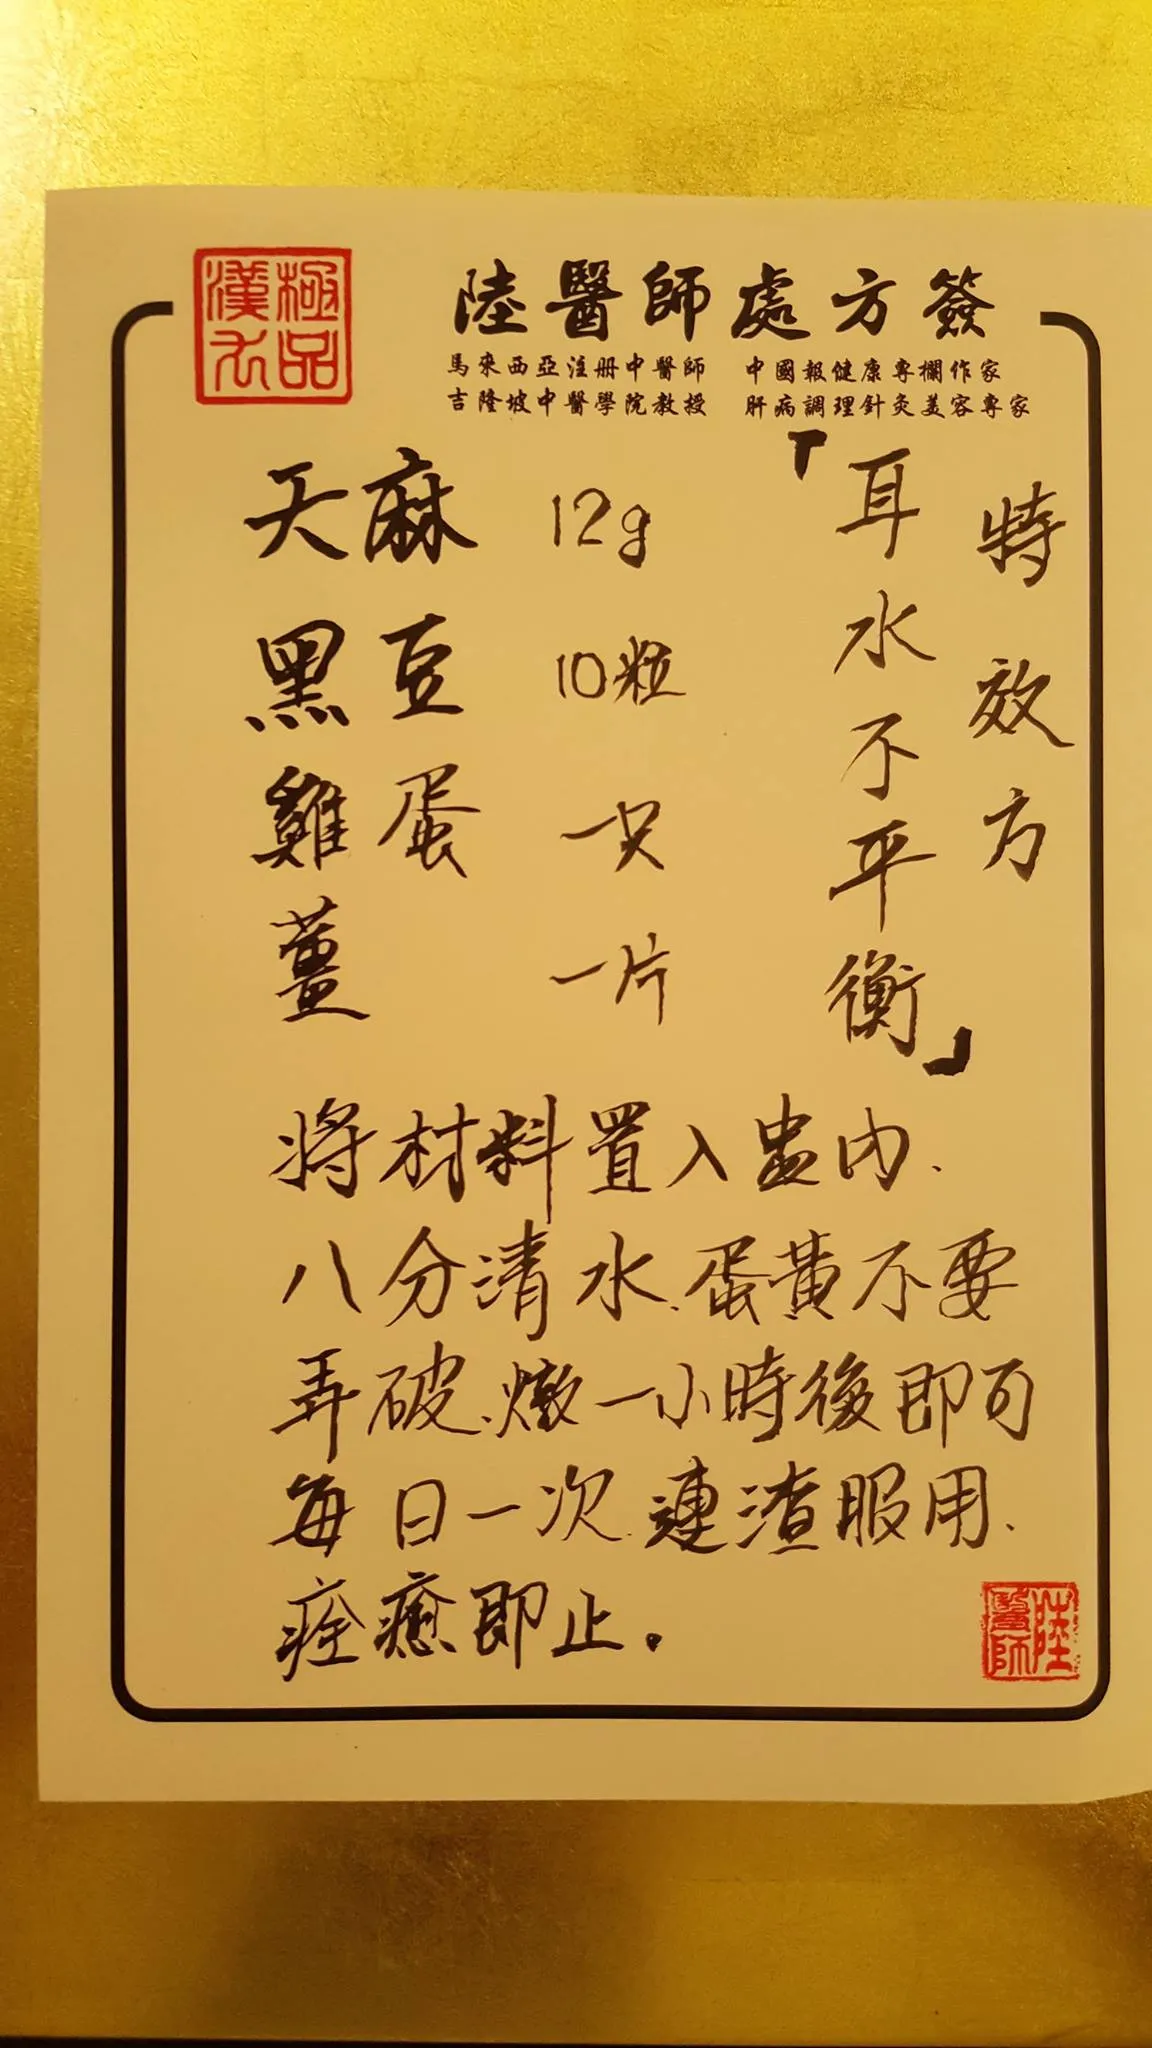 極品
漢方
陸醫師處方簽
馬來西亞注册中醫師 中國報健康專欄作家
吉隆坡中醫學院教授 肝病調理針灸美容專家
特效方
「耳水不平衡」
天麻 12g
黑豆 10粒
雞蛋 一只
薑 一片
將材料置入盅内.
八分清水.蛋黃不要
弄破.燉一小時後即可
每日一次.連渣服用.
痊癒即止。
陸醫師